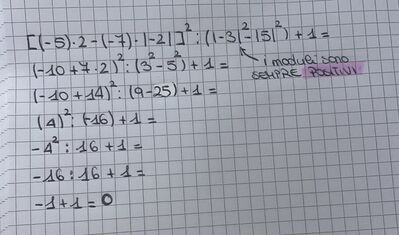 [(-5)·2-(-7)·|-2|]²:(|-3|²-|5|²)+1=
(-10+7·2)²:(3²-5²)+1=
i moduli sono
SEMPRE POSITIVI
(-10+14)²:(9-25)+1=
(4)²:(-16)+1=
-4²:16+1=
-16:16+1=
-1+1=0